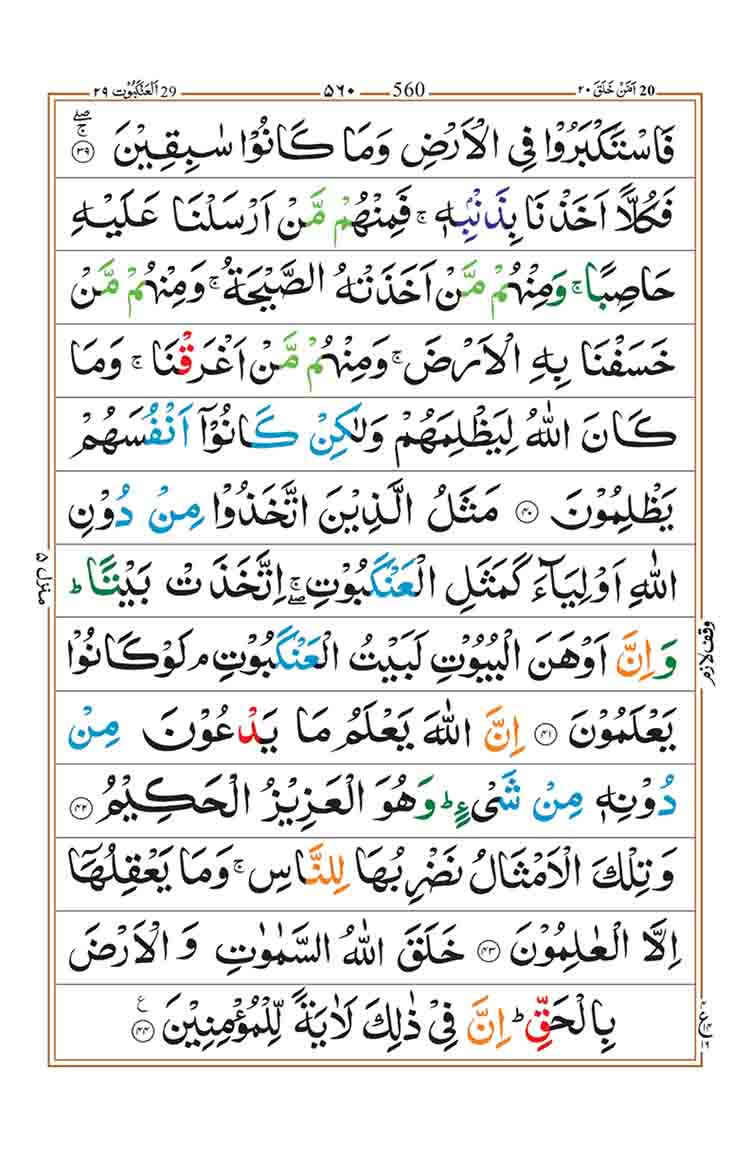 20 اَمَّنْ خَلَقَ ٢٠ 560 ٥٦٠ 29 اَلْعَنْكَبُوْت ٢٩
فَاسْتَكْبَرُوْا فِى الْاَرْضِ وَمَا كَانُوْا سٰبِقِيْنَ ۚۖ ﴿٣٩﴾
فَكُلًّا اَخَذْنَا بِذَنْۢبِهٖ ۚ فَمِنْهُمْ مَّنْ اَرْسَلْنَا عَلَيْهِ
حَاصِبًا ۚ وَمِنْهُمْ مَّنْ اَخَذَتْهُ الصَّيْحَةُ ۚ وَمِنْهُمْ مَّنْ
خَسَفْنَا بِهِ الْاَرْضَ ۚ وَمِنْهُمْ مَّنْ اَغْرَقْنَا ۚ وَمَا
كَانَ اللّٰهُ لِيَظْلِمَهُمْ وَلٰكِنْ كَانُوْۤا اَنْفُسَهُمْ
يَظْلِمُوْنَ ﴿٤٠﴾ مَثَلُ الَّذِيْنَ اتَّخَذُوْا مِنْ دُوْنِ
اللّٰهِ اَوْلِيَآءَ كَمَثَلِ الْعَنْكَبُوْتِ ۚۖ اِتَّخَذَتْ بَيْتًا ؕ
وَ اِنَّ اَوْهَنَ الْبُيُوْتِ لَبَيْتُ الْعَنْكَبُوْتِ ۘ لَوْ كَانُوْا
يَعْلَمُوْنَ ﴿٤١﴾ اِنَّ اللّٰهَ يَعْلَمُ مَا يَدْعُوْنَ مِنْ
دُوْنِهٖ مِنْ شَىْءٍ ؕ وَهُوَ الْعَزِيْزُ الْحَكِيْمُ ﴿٤٢﴾
وَتِلْكَ الْاَمْثَالُ نَضْرِبُهَا لِلنَّاسِ ۚ وَمَا يَعْقِلُهَاۤ
اِلَّا الْعٰلِمُوْنَ ﴿٤٣﴾ خَلَقَ اللّٰهُ السَّمٰوٰتِ وَ الْاَرْضَ
بِالْحَقِّ ؕ اِنَّ فِىْ ذٰلِكَ لَاٰيَةً لِّلْمُؤْمِنِيْنَ ﴿٤٤﴾ ع
منزل ٥
وقف لازم